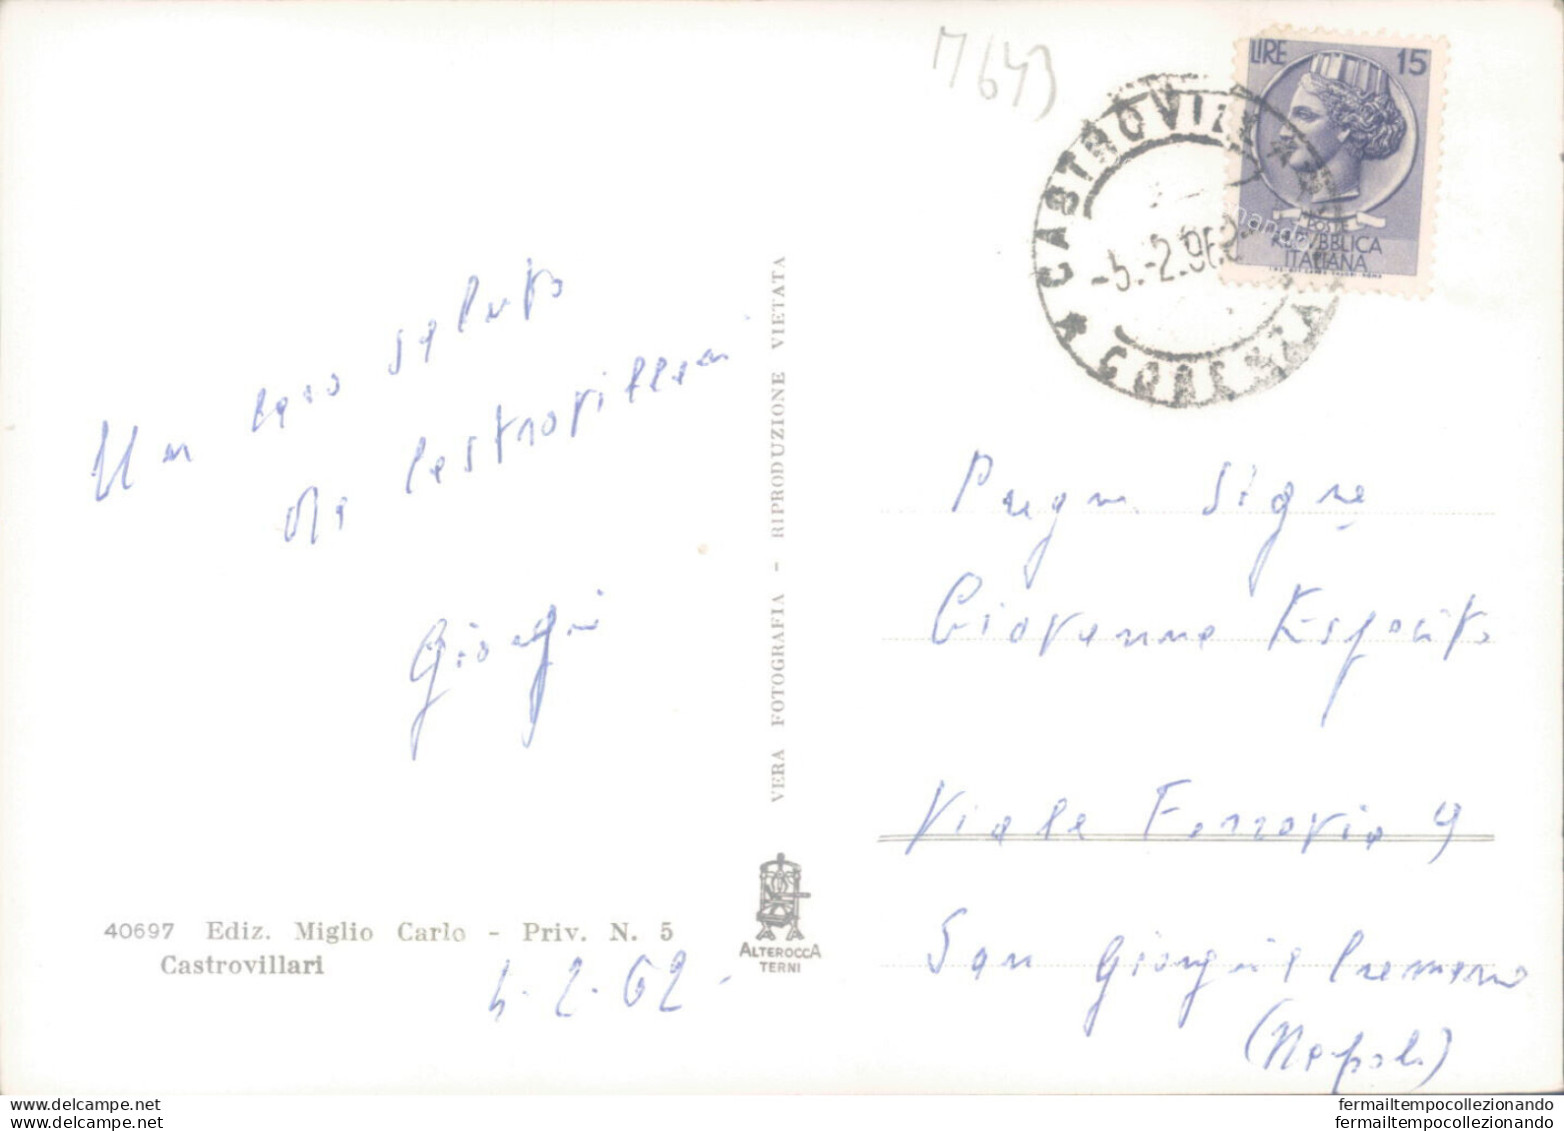 M643
LIRE 15
POSTE
REPVBBLICA
ITALIANA
CASTROVILLARI
-5.-2.962
COSENZA
Un caro saluto
da Castrovillari
Giorgio
VERA FOTOGRAFIA - RIPRODUZIONE VIETATA
Giovanna Esposito
Viale Ferrovia 9
San Giorgio a Cremano
(Napoli)
40697 Ediz. Miglio Carlo - Priv. N. 5
Castrovillari
4.2.62
ALTEROCCA
TERNI
www.delcampe.net
fermailtempocollezionando
fermailtempocollezionando